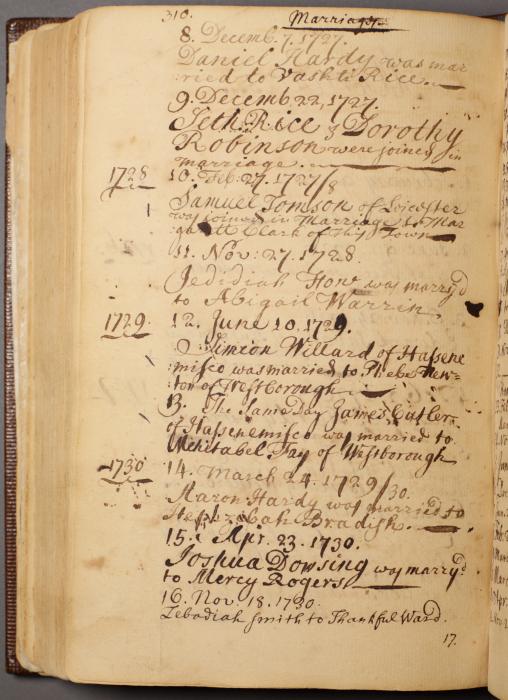 310.
Marriages.
8. Decemb. 7. 1727.
Daniel Hardy was mar
ried to Vashti Rice.
9. Decemb. 22. 1727.
Seth Rice & Dorothy
Robinson were joined in
marriage.
1728
10. Feb. 27. 1727/8
Samuel Tomson of Leicester
was joined in Marriage to Mar
garett Clark of this Town
11. Nov: 27. 1728.
Jedidiah How was marry'd
to Abigail Warrin.
1729.
12. June 10. 1729.
Simeon Willard of Hassene
misco was married to Phebe New=
ton of Westborough
13. The Same Day James Cutler
of Hassenemisco was married to
Mehitabel Fay of Westborough
1730
14. March 24. 1729/30.
Aaron Hardy was married to
Bradish.
15. Apr. 23. 1730.
Joshua Dowsing was marry'd
to Mercy Rogers
16. Nov. 18. 1730.
Zebadiah Smith to Thankful Ward.
17.